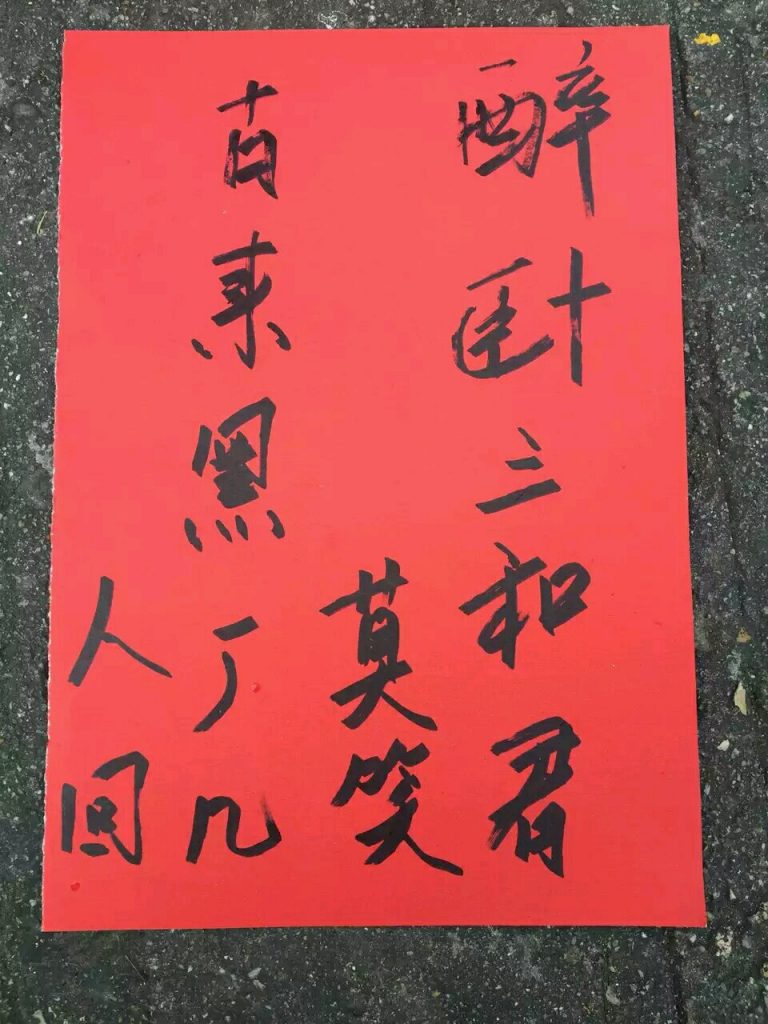 醉卧三和君
莫笑
古来黑厂几
人回